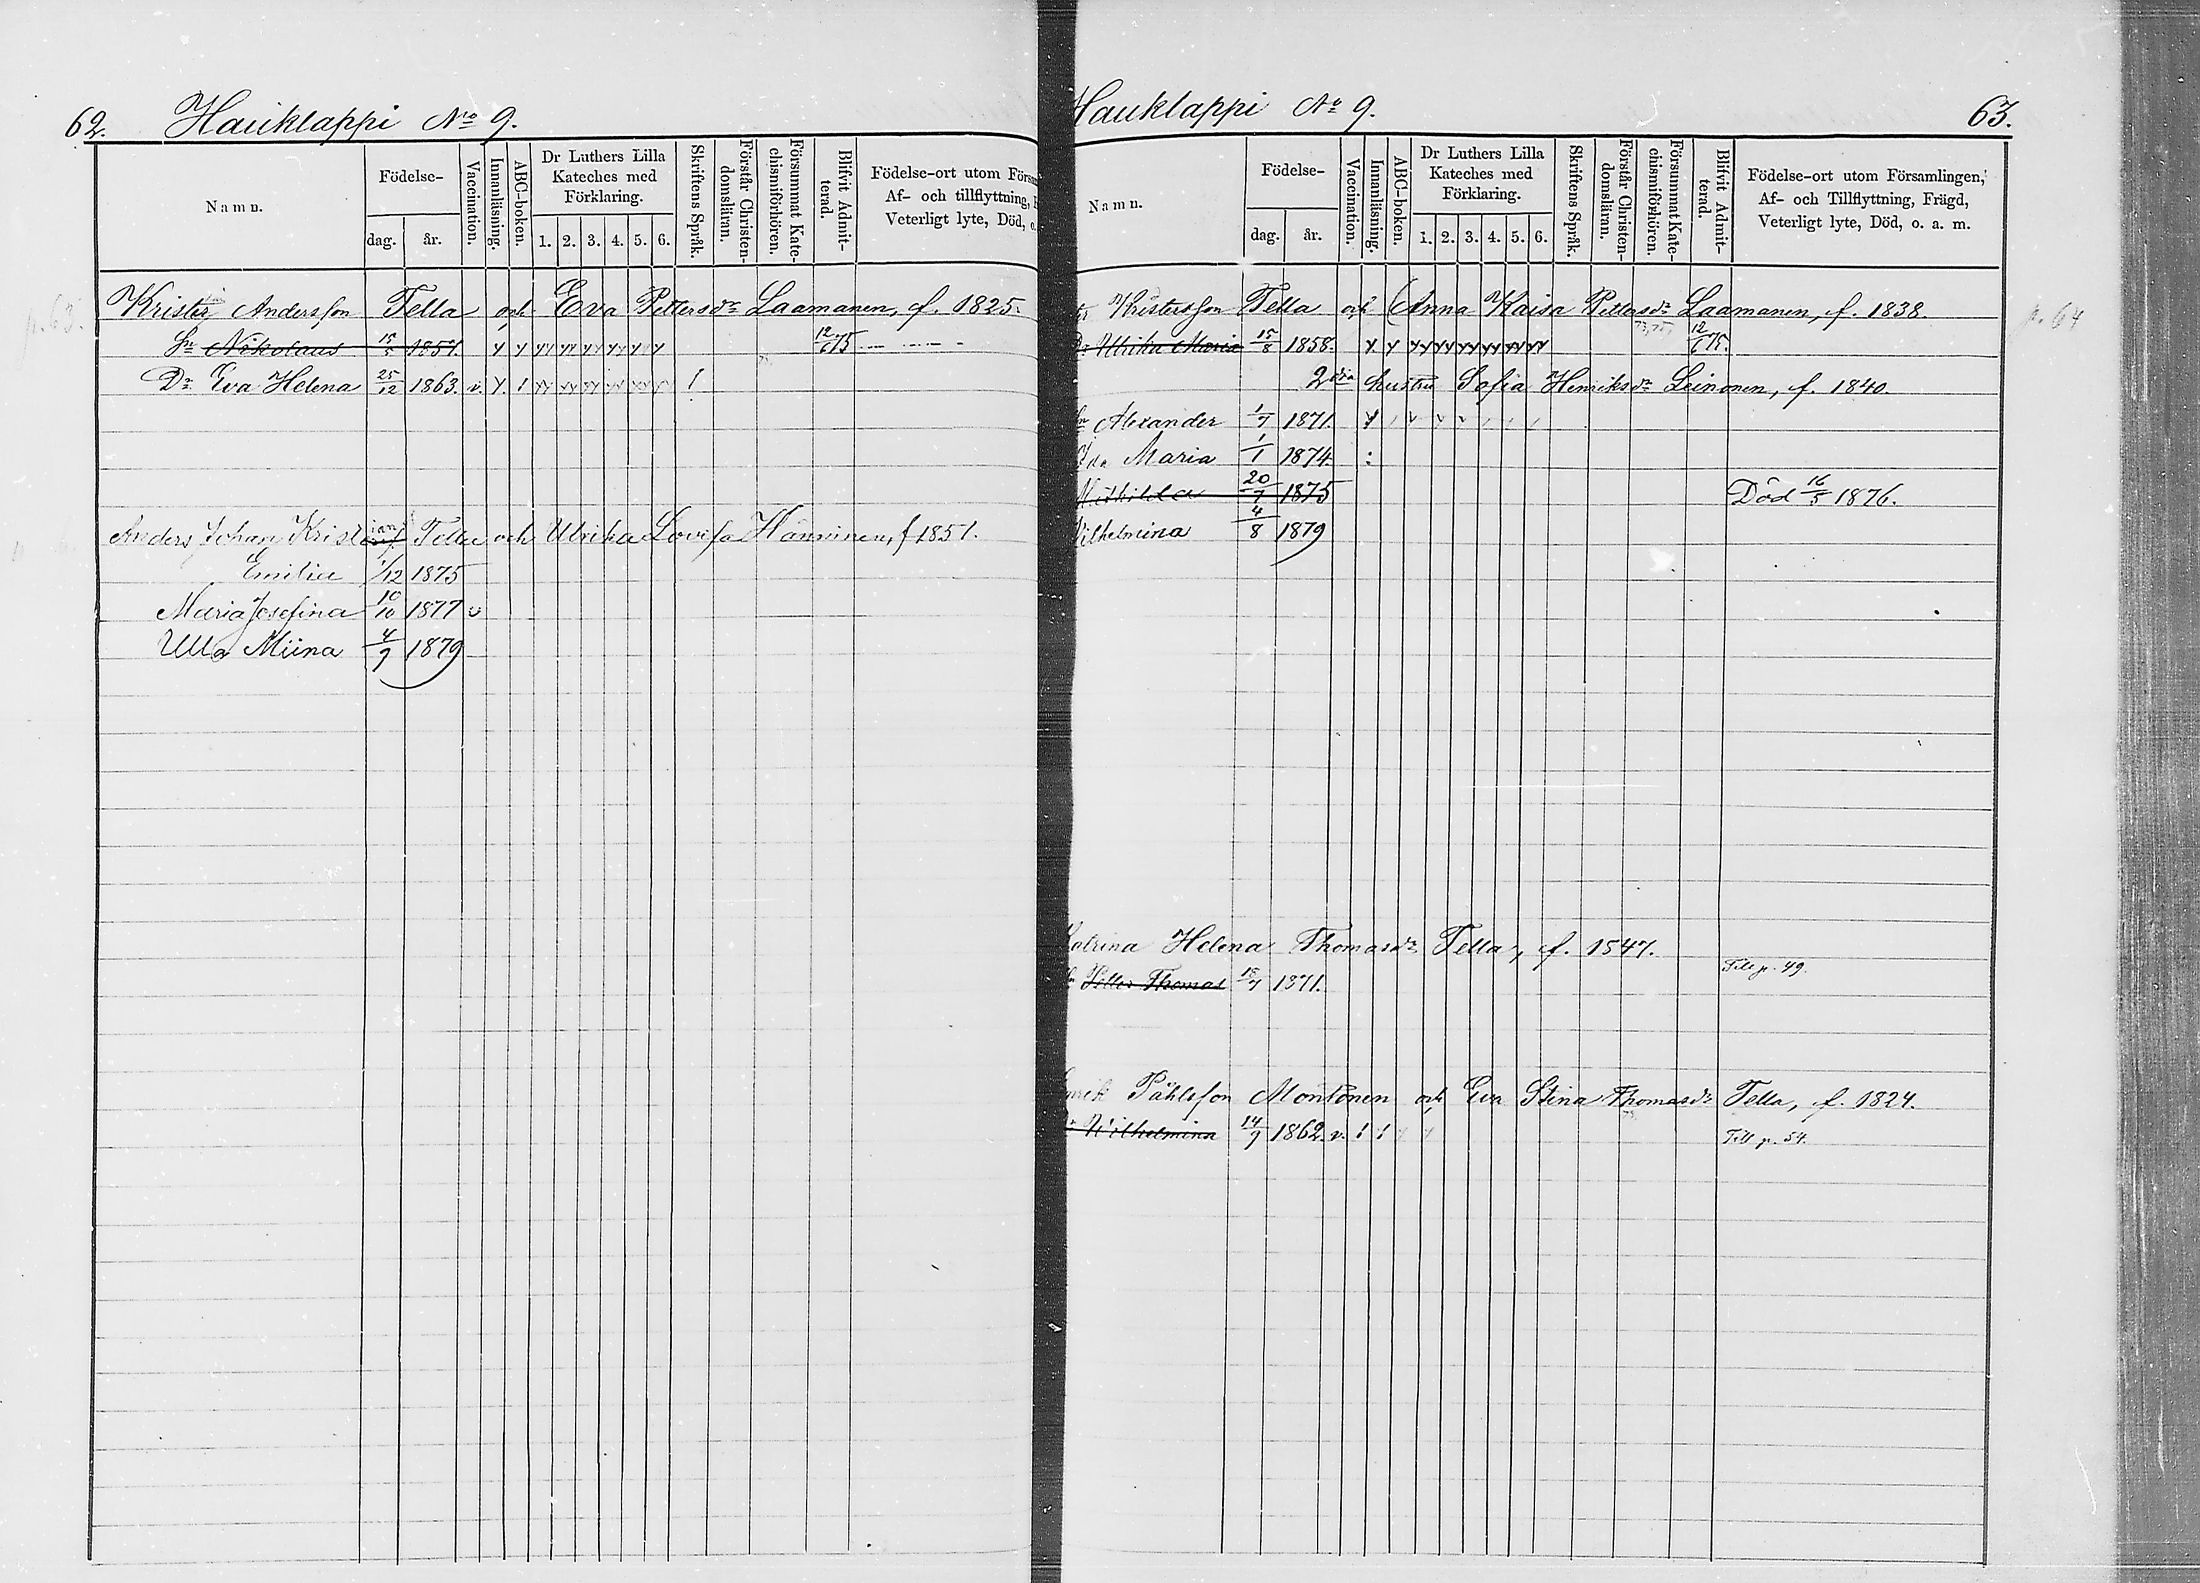 62. Hauklappi No 9.
Namn.
Födelse-
dag.
år.
Vaccination.
Innanläsning.
ABC-boken.
Dr Luthers Lilla
Kateches med
Förklaring.
1. 2. 3. 4. 5. 6.
Skriftens Språk.
Förstår Christen-
domsläran.
Försummat Kate-
chismiförhören.
Blifvit Admit-
terad.
Födelse-ort utom Försam
Af- och tillflyttning,
Veterligt lyte, Död, o.
p. 63.
Krister Andersson Tella och Eva Pettersdr Laamanen, f. 1825.
Sn Nikolaus 15/5 1857. 12/6 75
Dr Eva Helena 25/12 1863. v.
Anders Johan Kristian Tella och Ulrika Lovisa Hänninen, f 1851.
Emilia 1/12 1875
Maria Josefina 10/10 1877 v
Ulla Miina 4/9 1879
Hauklappi No 9. 63.
Namn.
Födelse-
dag.
år.
Vaccination.
Innanläsning.
ABC-boken.
Dr Luthers Lilla
Kateches med
Förklaring.
1. 2. 3. 4. 5. 6.
Skriftens Språk.
Förstår Christen-
domsläran.
Försummat Kate-
chismiförhören.
Blifvit Admit-
terad.
Födelse-ort utom Församlingen,
Af- och Tillflyttning, Frägd,
Veterligt lyte, Död, o. a. m.
Kristersson Tella och (Anna Kaisa Pettersdr Laamanen, f. 1838.
p. 64
Dr Ulrika Maria 15/8 1858. 73,75, 12/6 75.
2dra hustru Sofia Henriksdr Leinonen, f. 1840.
Sn Alexander 1/7 1871.
Ida Maria 1/1 1874
Mathilda 20/7 1875 Död 16/5 1876.
Vilhelmina 4/8 1879
Katrina Helena Thomasdr Tella, f. 1847.
Sn Petter Thomas 15/7 1871. Till p. 49.
Påhlsson Montonen och Eva Stina Thomasdr Tella, f. 1824.
Wilhelmina 14/9 1862. v. Till p. 54.